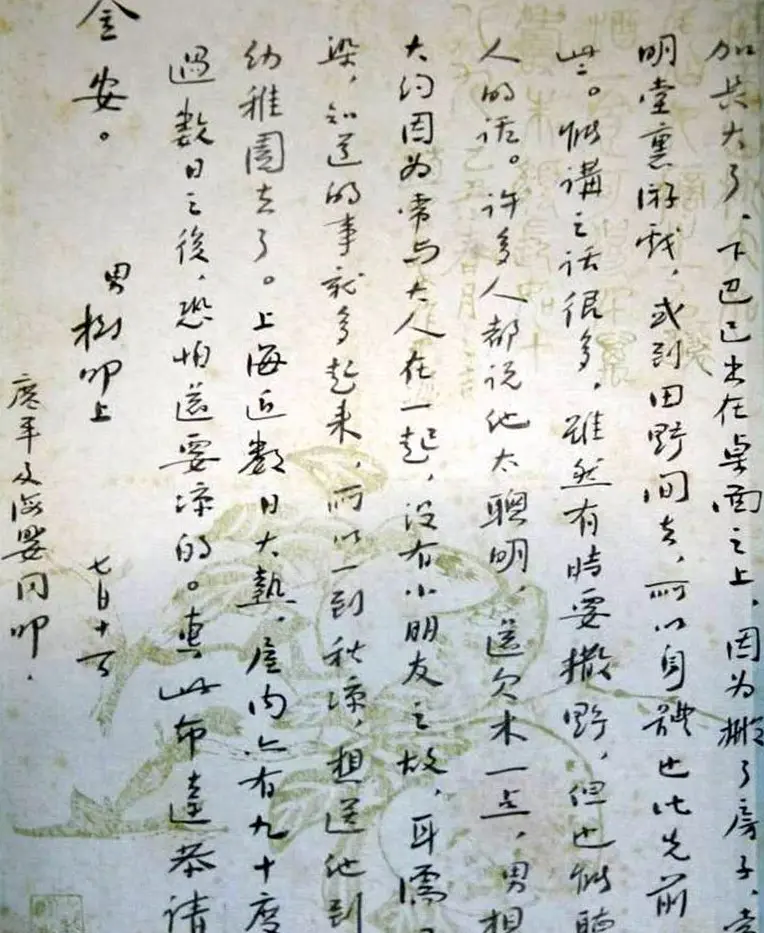 加長大了，下巴已出在桌面之上，因为搬了房子，常
明堂里游戏，或到田野间去，所以身體也比先前
些。能講之话很多，雖然有時要撒野，但也能聽
人的话。许多人都说他太聰明，還欠木一点，男想
大约因为常与大人在一起，没有小朋友之故，耳濡
染，知道的事就多起来，所以一到秋凉，想送他到
幼稚園去了。上海近數日大熱，屋内亦有九十度
過數日之後，恐怕還要凉的。專此布達恭请
金安。
男樹叩上
七月十二
廣平及海嬰同叩．